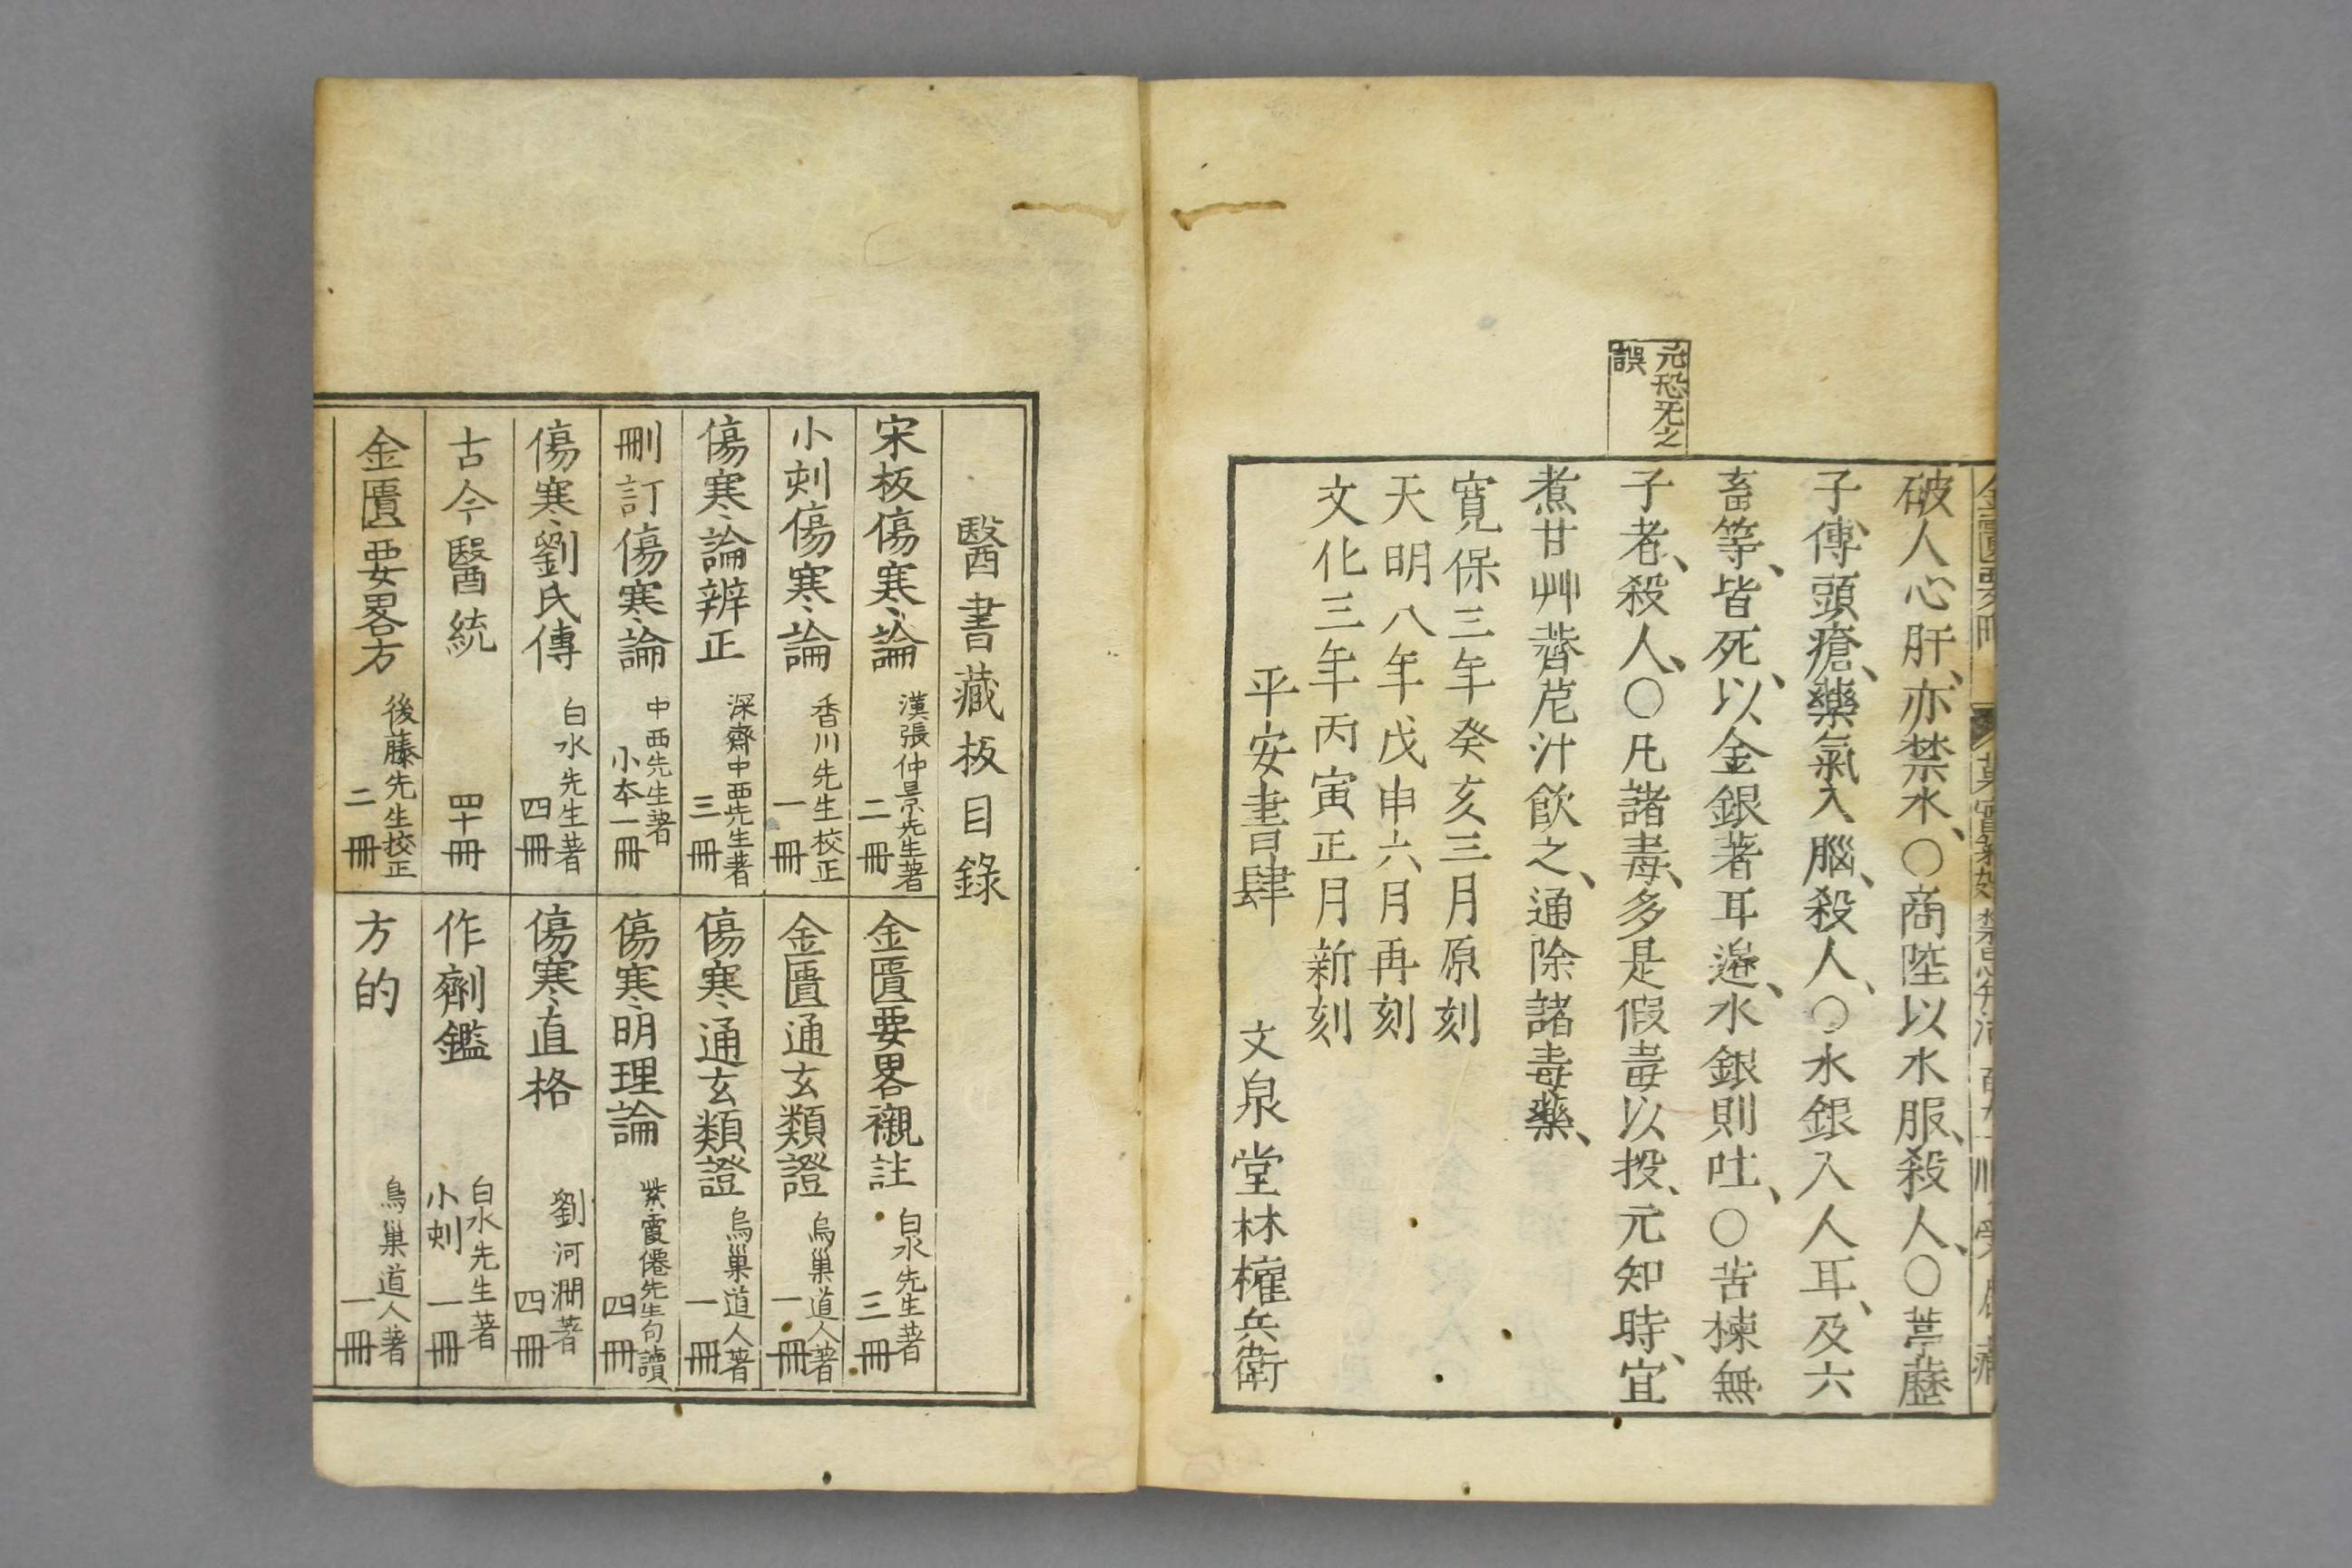 破人心肝、亦禁水、○商陸以水服、殺人、○葶藶
子、傅頭瘡、藥氣入腦、殺人、○水銀入人耳、及六
畜等、皆死、以金銀著耳邊、水銀則吐、○苦楝無
子者、殺人、○凡諸毒、多是假毒以投、元知時、宜
元恐旡之
誤
煮甘艸薺苨汁飲之、通除諸毒藥、
寬保三年癸亥三月原刻
天明八年戊申六月再刻
文化三年丙寅正月新刻
平安書肆 文泉堂林權兵衛
醫書藏板目錄
宋板傷寒論 漢張仲景先生著 二冊
小刻傷寒論 香川先生校正 一冊
傷寒論辨正 深齋中西先生著 三冊
刪訂傷寒論 中西先生著 小本一冊
傷寒劉氏傳 白水先生著 四冊
古今醫統 四十冊
金匱要畧方 後藤先生校正 二冊
金匱要畧襯註 白水先生著 三冊
金匱通玄類證 烏巢道人著 一冊
傷寒通玄類證 烏巢道人著 一冊
傷寒明理論 紫霞僊先生句讀 四冊
傷寒直格 劉河澗著 四冊
作劑鑑 白水先生著 小刻一冊
方的 鳥巢道人著 一冊